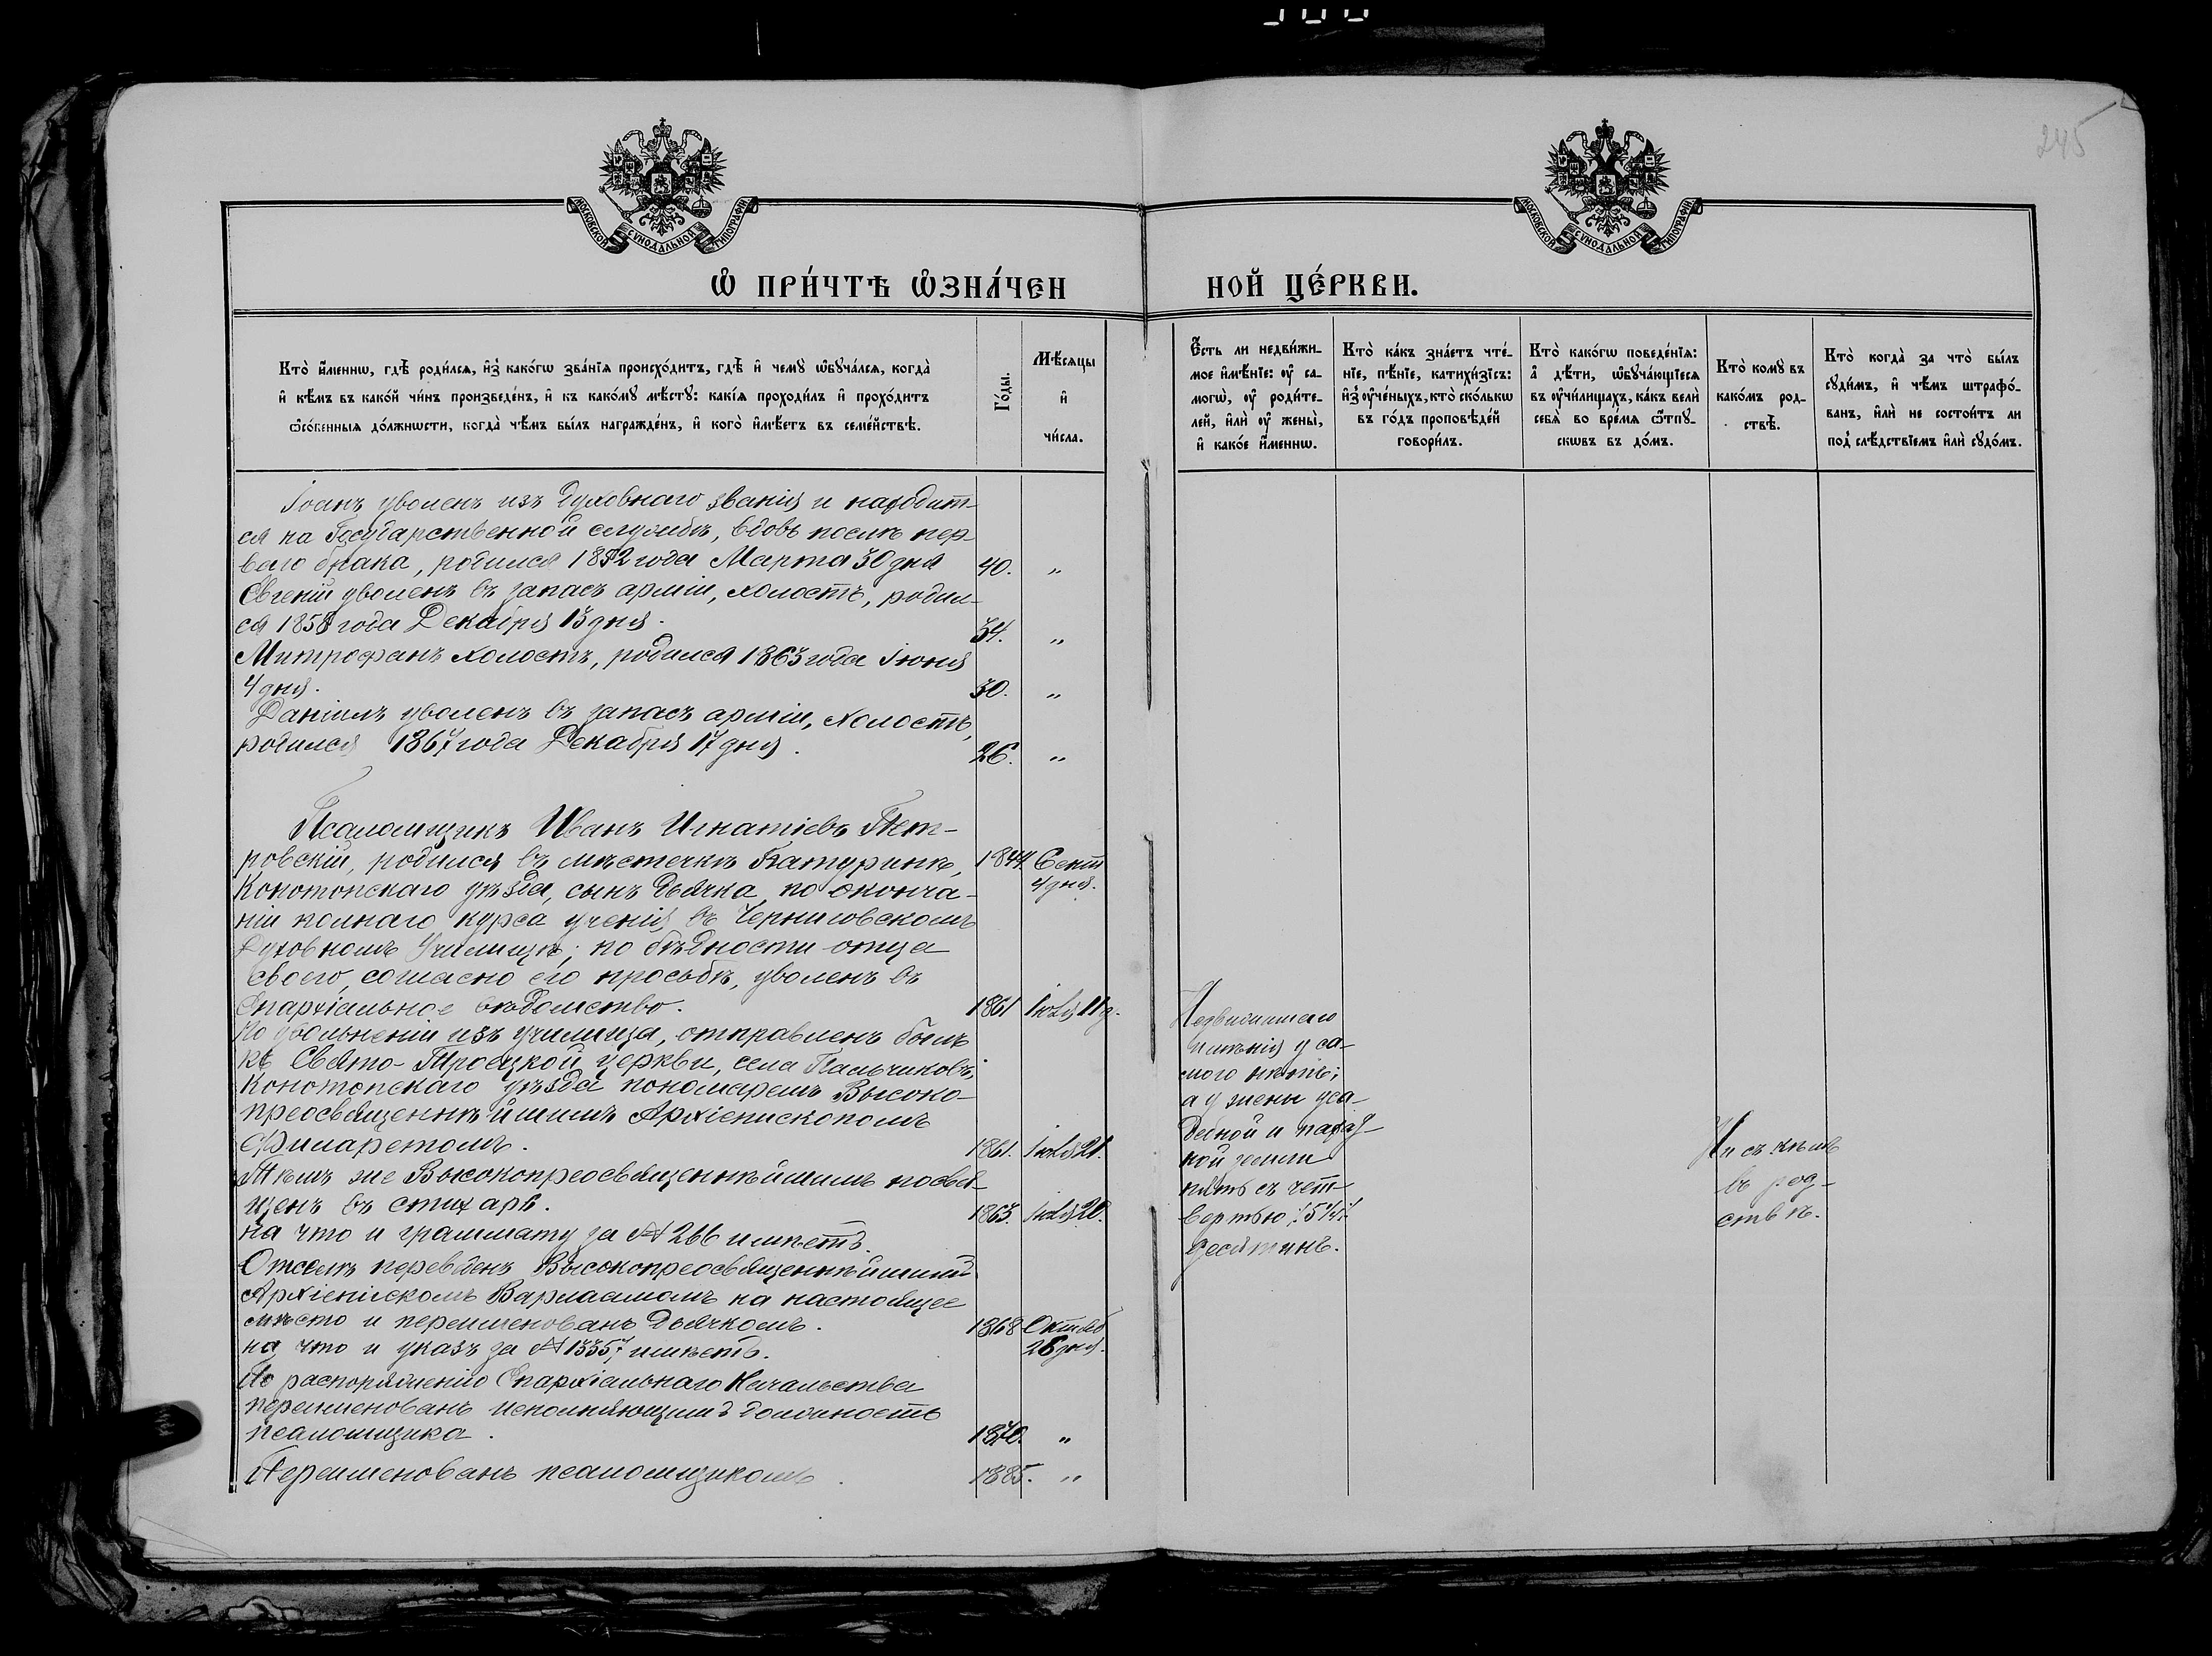 245
МОСКОВСКОЙ СѴНОДАЛЬНОЙ ТИПОГРАФІИ
МОСКОВСКОЙ СѴНОДАЛЬНОЙ ТИПОГРАФІИ
Ѡ ПРИ́ЧТѢ ѠЗНА́ЧЕН
НОЙ ЦЕ́РКВИ.
Кто̀ и҆́меннѡ, гдѣ̀ роди́лсѧ, и҆з̾ како́гѡ зва́нїѧ происхо́дитъ, гдѣ̀ и҆ чемꙋ̀ ѡ҆бꙋча́лсѧ, когда̀
и҆ кѣ́мъ въ како́й чи́нъ произведе́нъ, и҆ къ како́мꙋ мѣ́стꙋ: какі́ѧ проходи́лъ и҆ прохо́дитъ
ѻ҆со́бенныѧ до́лжнѡсти, когда̀ чѣ́мъ бы́лъ награжде́нъ, и҆ кого̀ и҆мѣ́етъ въ семе́йствѣ.
Го́ды.
Мѣ́сѧцы
и҆
чи́сла.
Є҆́сть ли недви́жи-
мое и҆мѣ́нїе: ᲂу҆ са-
могѡ̀, ᲂу҆ роди́те-
лей, и҆лѝ ᲂу҆ жены̀,
и҆ како́е и҆́меннѡ.
Кто̀ ка́къ зна́етъ чте́-
нїе, пѣ́нїе, катихи́зїсъ:
и҆з̾ ᲂу҆че́ныхъ, кто̀ ско́лькѡ
въ го́дъ проповѣ́дей
говори́лъ.
Кто̀ како́гѡ поведе́нїѧ:
а҆ дѣ́ти, ѡ҆бꙋча́ющїесѧ
въ ᲂу҆чи́лищахъ, ка́къ велѝ
себѧ̀ во вре́мѧ ѿпꙋ-
скѡвъ въ до́мъ.
Кто̀ комꙋ̀ въ
како́мъ род-
ствѣ̀.
Кто̀ когда̀ за что̀ бы́лъ
сꙋди́мъ, и҆ чѣ́мъ штрафо́-
ванъ, и҆лѝ не состои́тъ ли
под̾ слѣ́дствїемъ и҆лѝ сꙋдо́мъ.
Іоанъ уволенъ изъ духовнаго званія и находит-
ся на Государственной службѣ, вдовъ послѣ пер
ваго брака, родился 1852 года Марта 30 дня 40. „
Евгеній уволенъ въ запасъ арміи, холостъ, родил-
ся 1858 года Декабря 13 дня. 34. „
Митрофанъ холостъ, родился 1863 года Іюня
4 дня. 30. „
Даніилъ уволенъ въ запасъ арміи, холостъ,
родился 1867 года Декабря 17 дня. 26. „
Псаломщикъ Иванъ Игнатіевъ Пет-
ровскій, родился въ мѣстечкѣ Батуринѣ, 1844 Сент
Конотопскаго уѣзда, сынъ Дьячка, по оконча- 4 дня.
ніи полнаго курса ученія въ Черниговскомъ
Духовномъ Училищѣ; по бѣдности отца
своего, согласно его просьбѣ, уволенъ въ
Епархіальное вѣдомство. 1861 Іюля 11 д.
По увольненіи изъ училища, отправленъ былъ
къ Свято-Троецкой церкви, села Пальчиковъ,
Конотопскаго уѣзда пономаремъ Высоко-
преосвященнѣйшимъ Архіепископомъ
Филаретомъ. 1861. Іюля 21.
Тѣмъ же Высокопреосвященнѣйшимъ посвя-
щенъ въ стихарь. 1863. Іюля 20.
на что и граммату за № 266 имѣетъ.
Отселѣ переведенъ Высокопреосвященнѣйшимъ
Архіепіскомъ Варлаамомъ на настоящее
мѣсто и переименованъ Дьячкомъ. 1868 Октяб
на что и указъ за № 13357, имѣетъ. 28 дня.
По распоряженію Епархіальнаго Начальства
переименованъ исполняющимъ должность
псаломщика. 1870. „
Переименованъ псаломщикомъ. 1885. „
Недвижимаго
имѣнія у са-
мого нѣтъ;
а у жены уса-
дебной и пахат-
ной земли
пять съ чет-
вертью /:5¼:/
десятинъ.
Ни съ кѣмъ
въ род-
ствѣ.